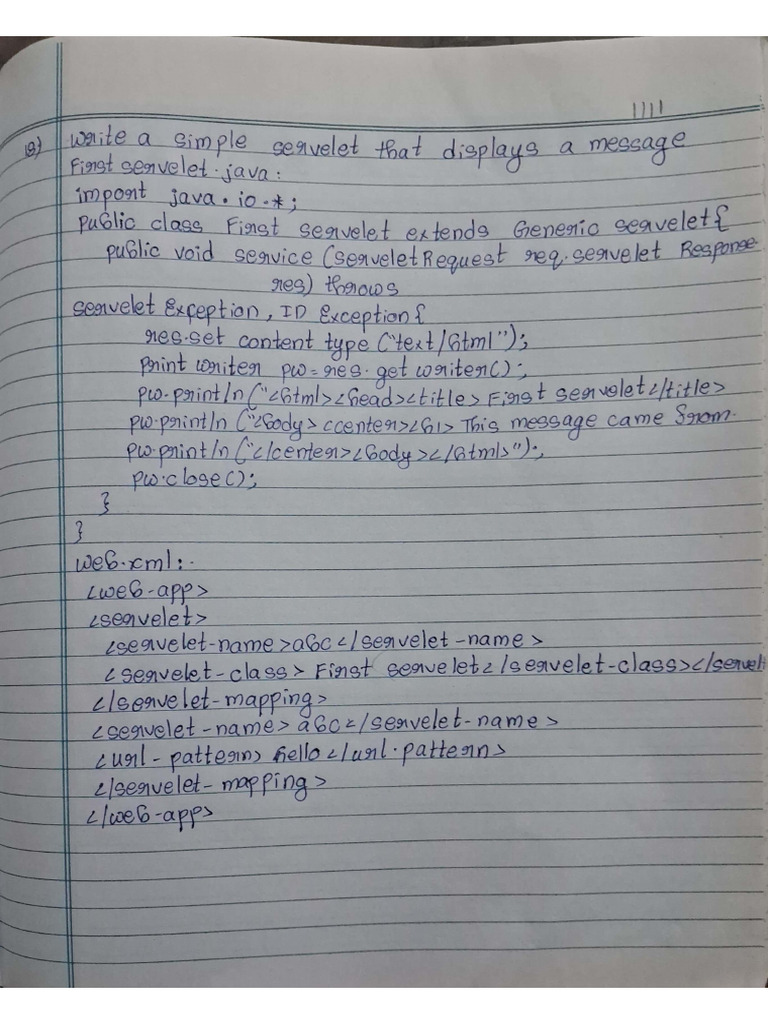 1111
19) write a simple servelet that displays a message
First servelet.java:
import java.io.*;
public class First servelet extends Generic servelet{
public void service (serveletRequest req.servelet Response
res) throws
servelet Exception, IO Exception{
res.set content type ("text/html");
print writer pw=res.get writer();
pw.println ("<html><head><title> First servelet</title>
pw.println ("<body><center><h1> This message came from.
pw.println ("</center><body></html>");
pw.close();
}
}
web.xml:.
<web-app>
<servelet>
<servelet-name>abc</servelet-name>
<servelet-class> First servelet</servelet-class></servel
</servelet-mapping>
<servelet-name>abc</servelet-name>
<url-pattern> hello </url.pattern>
</servelet-mapping>
</web-app>